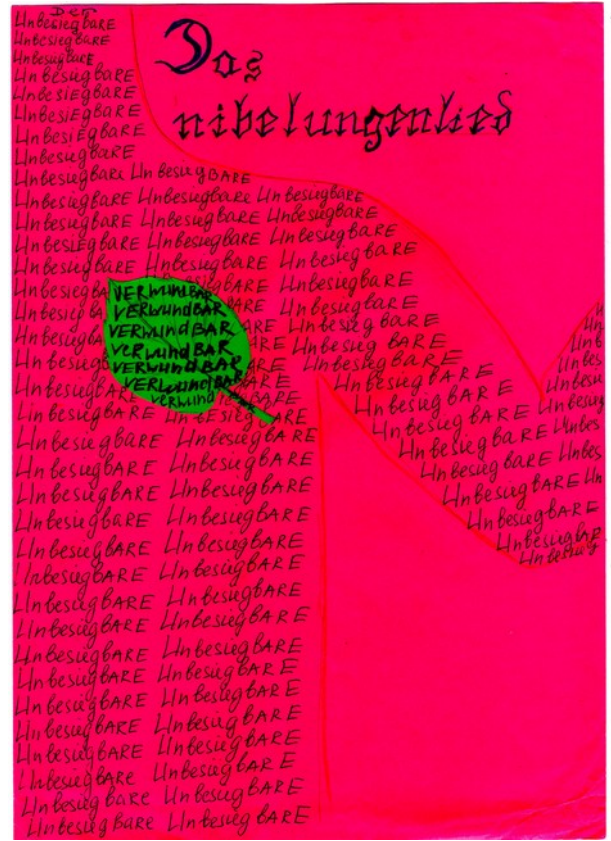 Das
nibelungenlied
Der
UnbesiegBARE
UnbesiegBARE
UnbesiegBARE
UnbesiegBARE
UnbesiegBARE
UnbesiegBARE
UnbesiegBARE
UnbesiegBARE
UnbesiegBARE UnbesiegBARE
UnbesiegBARE UnbesiegBARE UnbesiegBARE
UnbesiegBARE UnbesiegBARE UnbesiegBARE
UnbesiegBARE UnbesiegBARE UnbesiegBARE
UnbesiegBARE UnbesiegBARE UnbesiegBARE
UnbesiegBARE
UnbesiegBARE
UnbesiegBARE
UnbesiegBARE
UnbesiegBARE
VERwundBAR
VERwundBAR
VERwundBAR
VERwundBAR
VERwundBAR
VERwundBAR
verwund
UnbesiegBARE UnbesiegBARE
UnbesiegBARE UnbesiegBARE
UnbesiegBARE UnbesiegBARE
UnbesiegBARE UnbesiegBARE
UnbesiegBARE UnbesiegBARE
UnbesiegBARE UnbesiegBARE
UnbesiegBARE UnbesiegBARE
UnbesiegBARE UnbesiegBARE
UnbesiegBARE UnbesiegBARE
UnbesiegBARE UnbesiegBARE
UnbesiegBARE UnbesiegBARE
UnbesiegBARE UnbesiegBARE
UnbesiegBARE UnbesiegBARE
UnbesiegBARE UnbesiegBARE
UnbesiegBARE UnbesiegBARE
UnbesiegBARE UnbesiegBARE
UnbesiegBARE UnbesiegBARE
UnbesiegBARE UnbesiegBARE
UnbesiegBARE
UnbesiegBARE
UnbesiegBARE
UnbesiegBARE Unbes
UnbesiegBARE Unbes
UnbesiegBARE Un
UnbesiegBARE
UnbesiegBAR
Unbesieg